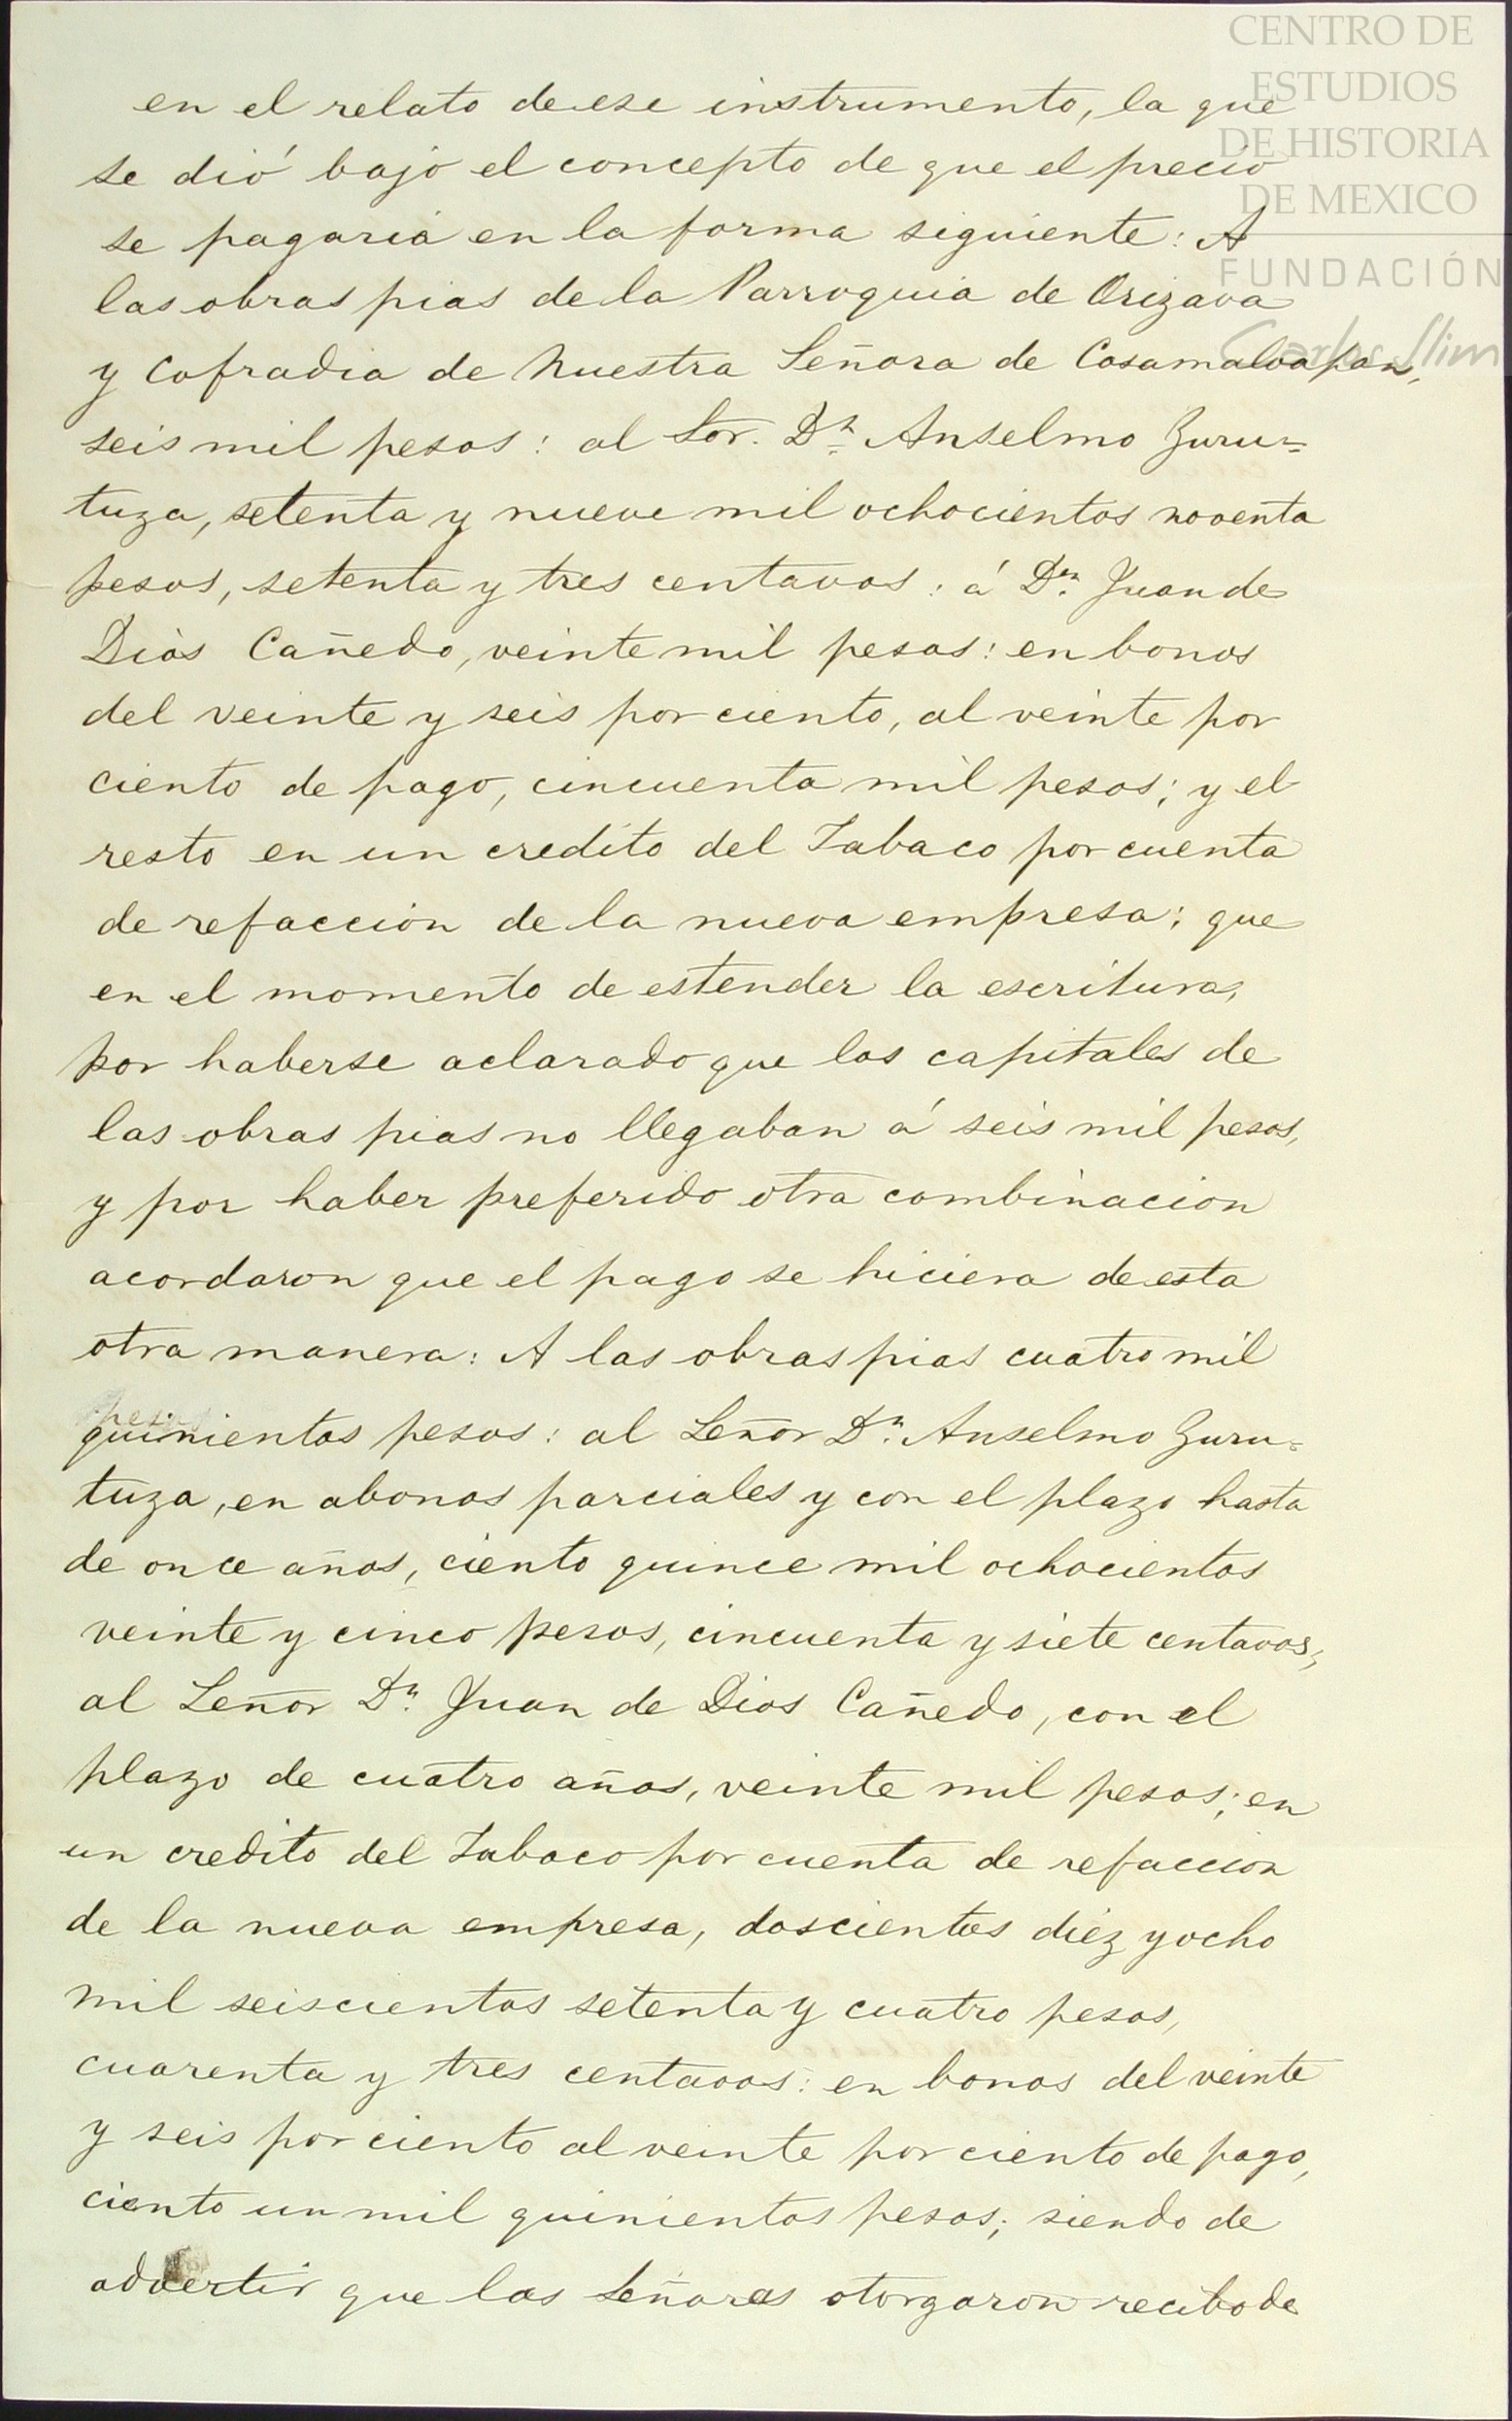 CENTRO DE
ESTUDIOS
DE HISTORIA
DE MEXICO
FUNDACIÓN
Carlos Slim
en el relato de ese instrumento, la que
se dió bajo el concepto de que el precio
se pagaria en la forma siguiente: A
las obras pias de la Parroquia de Orizava
y Cofradia de Nuestra Señora de Cosamaloapan,
seis mil pesos: al Sor. Dn. Anselmo Zuru=
tuza, setenta y nueve mil ochocientos noventa
pesos, setenta y tres centavos: á Dn. Juan de
Dios Cañedo, veinte mil pesos: en bonos
del veinte y seis por ciento, al veinte por
ciento de pago, cincuenta mil pesos; y el
resto en un credito del Tabaco por cuenta
de refaccion de la nueva empresa; que
en el momento de estender la escritura,
por haberse aclarado que los capitales de
las obras pias no llegaban á seis mil pesos,
y por haber preferido otra combinacion
acordaron que el pago se hiciera de esta
otra manera: A las obras pias cuatro mil
quinientos pesos: al Señor Dn. Anselmo Zuru=
tuza, en abonos parciales y con el plazo hasta
de once años, ciento quince mil ochocientos
veinte y cinco pesos, cincuenta y siete centavos,
al Señor Dn. Juan de Dios Cañedo, con el
plazo de cuatro años, veinte mil pesos; en
un credito del Tabaco por cuenta de refaccion
de la nueva empresa, doscientos diez y ocho
mil seiscientos setenta y cuatro pesos,
cuarenta y tres centavos: en bonos del veinte
y seis por ciento al veinte por ciento de pago,
ciento un mil quinientos pesos; siendo de
advertir que los Señores otorgaron recibo de